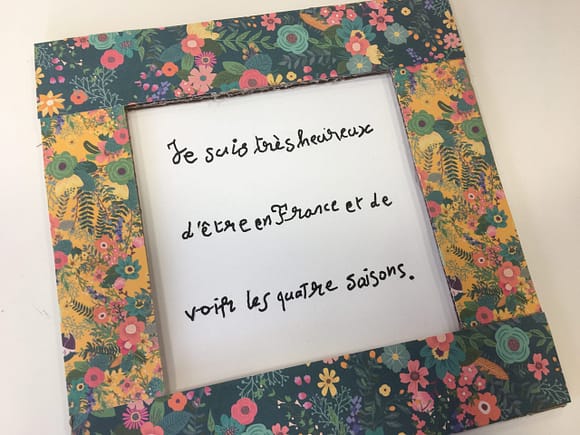 Je suis très heureux
d'être en France et de
voir les quatre saisons.